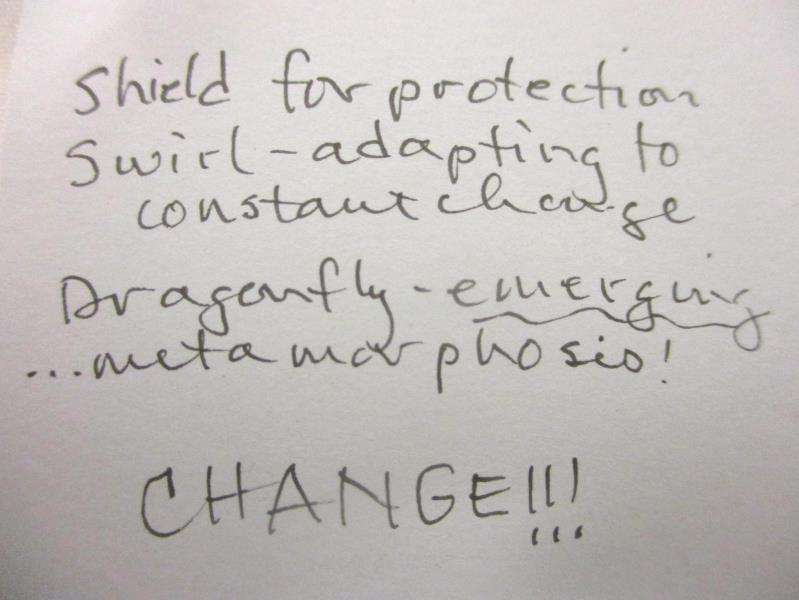 Shield for protection
Swirl - adapting to
constant change
Dragonfly - emerging
...metamorphosis!
CHANGE!!!